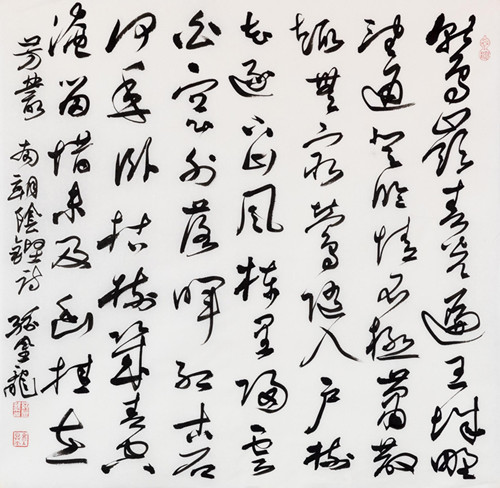 鷲嶺春光遍王城野
望通登临情不極蕭散
趣無窮鶯随入户樹
花逐下山風棟里歸雲
白窗外落暉红古石
何年卧枯樹幾春空
淹留惜未及幽桂在
芳叢 南朝陰鏗詩 金龍